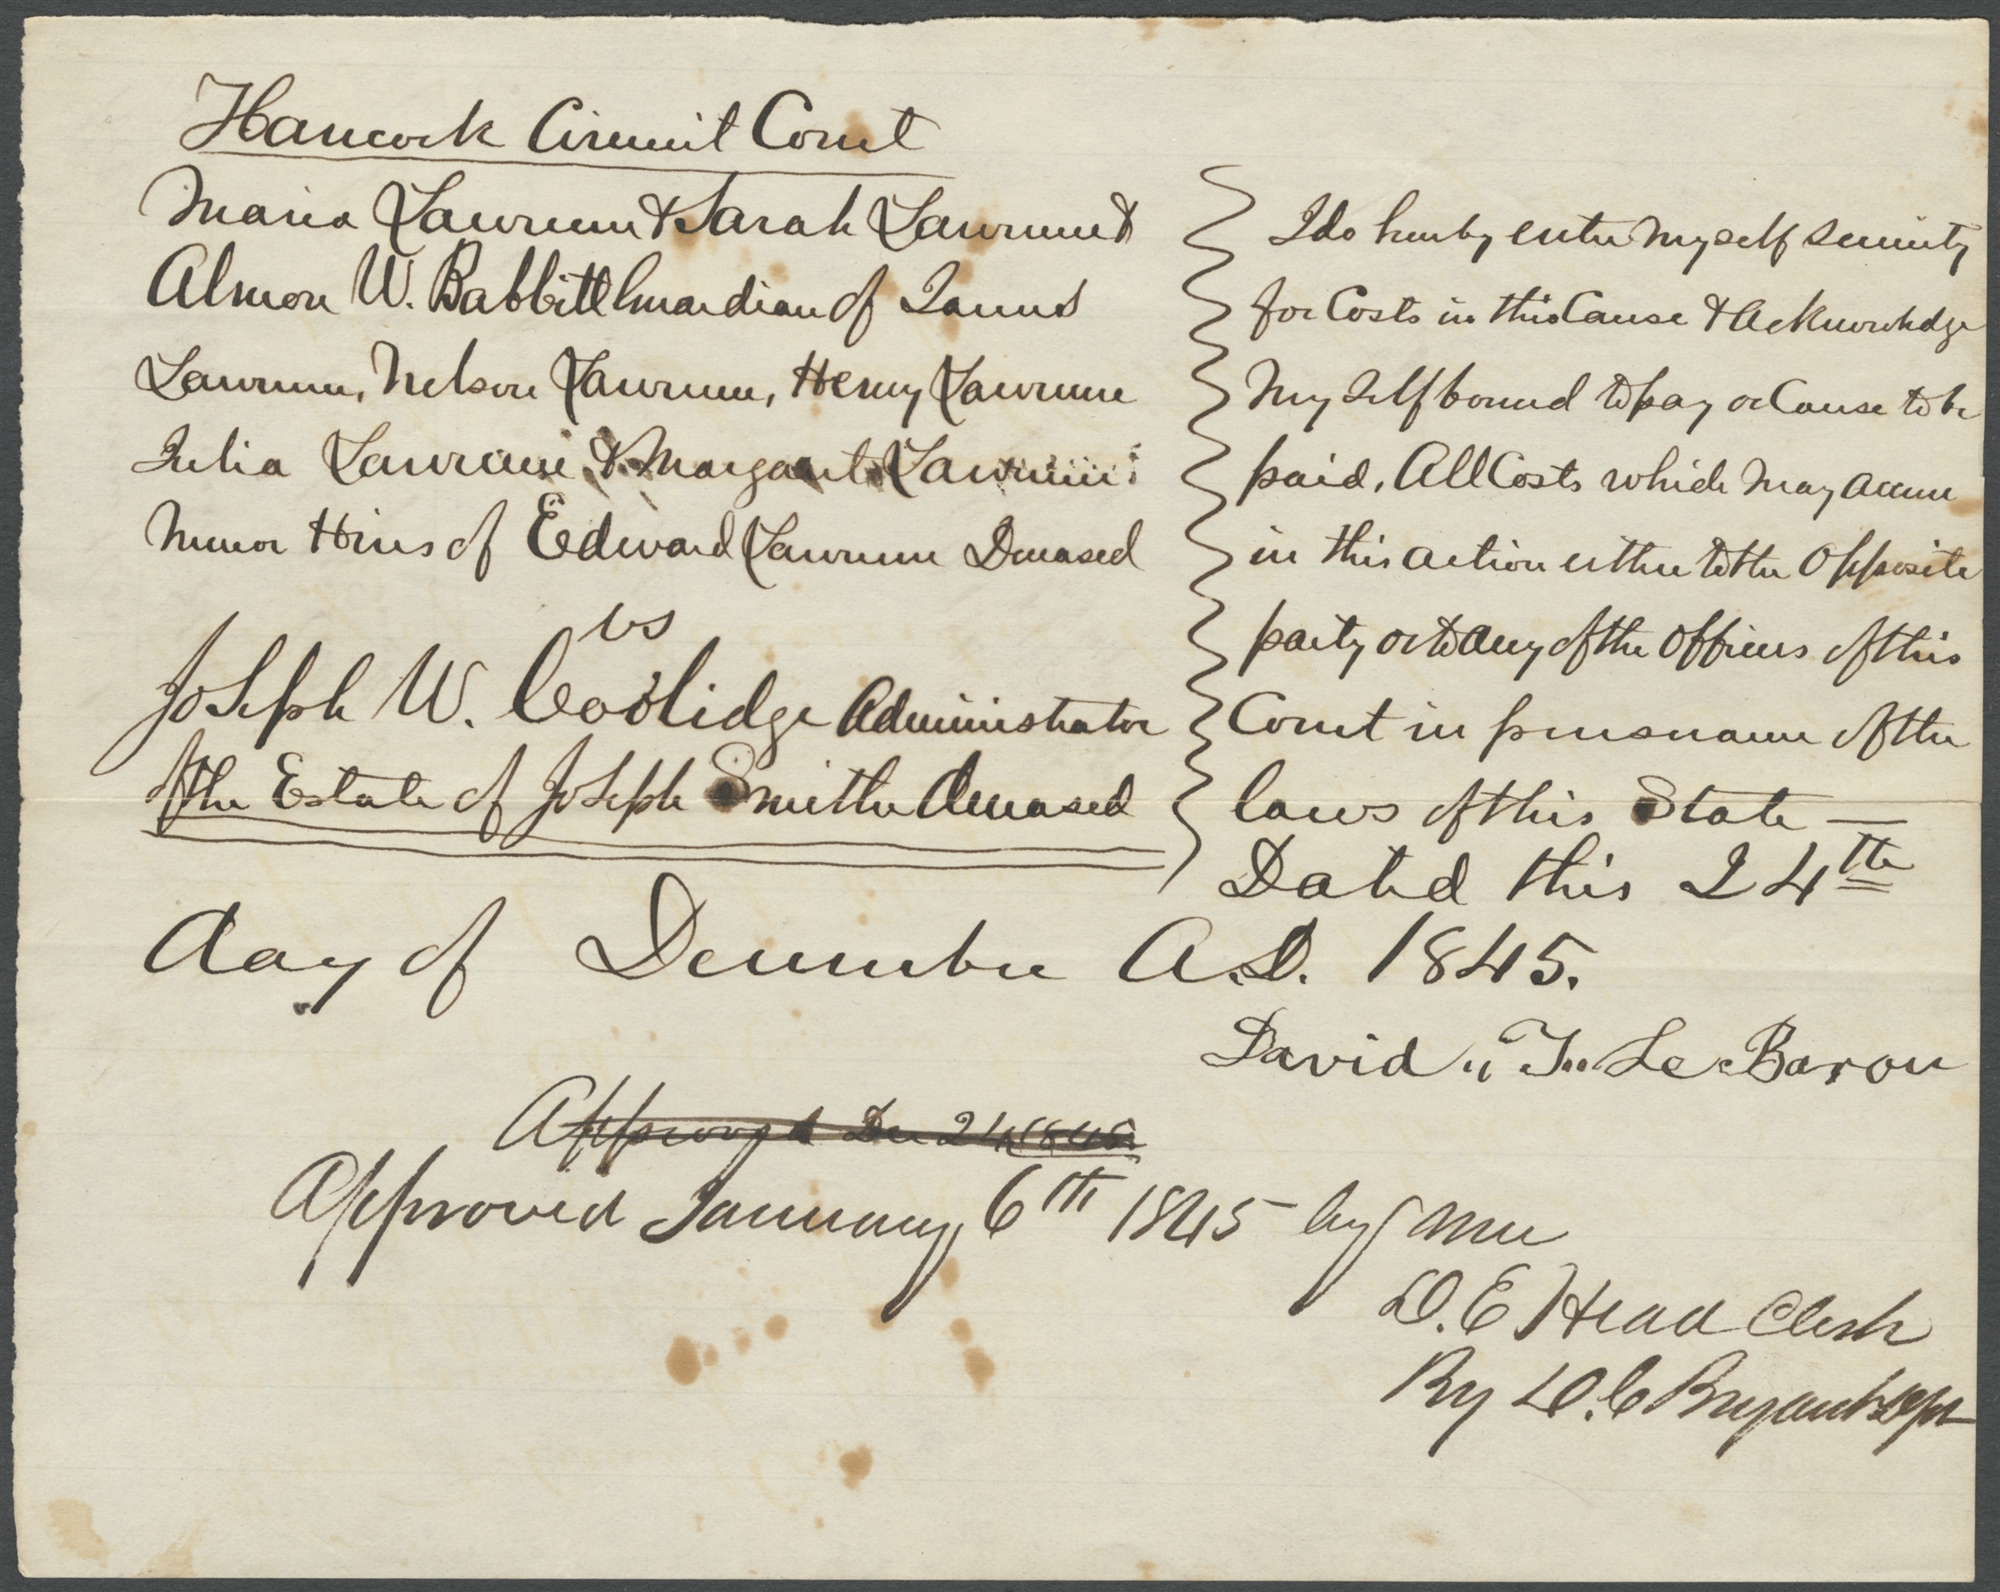 Hancock Circuit Court
Maria Lawrence & Sarah Lawrence &
Almon W. Babbitt Guardian of James
Lawrence, Nelson Lawrence, Henry Lawrence
Julia Lawrence & Margaret Lawrence
Minor Heirs of Edward Lawrence Deceased
vs
Joseph W. Coolidge Administrator
of the Estate of Joseph Smith deceased
I do hereby enter myself security
for Costs in this Cause & Acknowledge
My Self bound to pay or Cause to be
paid, All Costs which May accrue
in this action either to the Opposite
party or to any of the Officers of this
Court in pursuance of the
laws of this State —
Dated this 24th
day of December A.D. 1845.
David T. Le Baron
Approved Dec 24 1845
Approved January 6th 1845 by me
D. E Head Clerk
By D. C Bryant Dpt